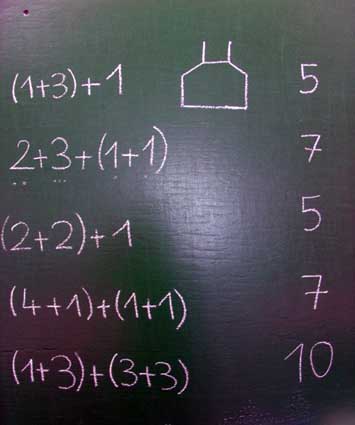 (1+3)+1 5
2+3+(1+1) 7
(2+2)+1 5
(4+1)+(1+1) 7
(1+3)+(3+3) 10